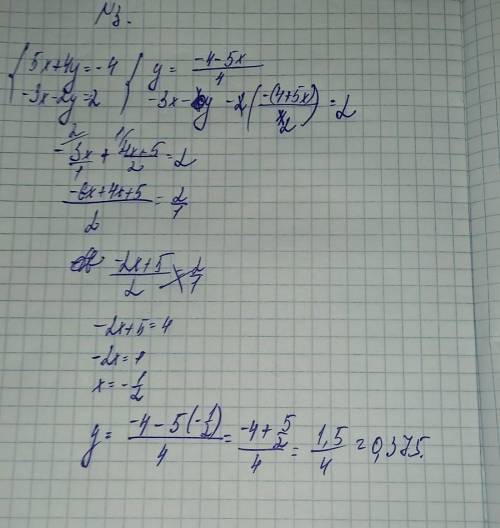 №3.
{ 5x+4y=-4 { y = (-4-5x)/4
{ -3x-2y=2 { -3x - 2(-(4+5x)/2) = 2
-3x/1 + (4x+5)/2 = 2
(-6x+4x+5)/2 = 2/1
(-2x+5)/2 = 2/1
-2x+5=4
-2x=1
x=-1/2
y = (-4-5(-1/2))/4 = (-4+5/2)/4 = 1,5/4 = 0,375.